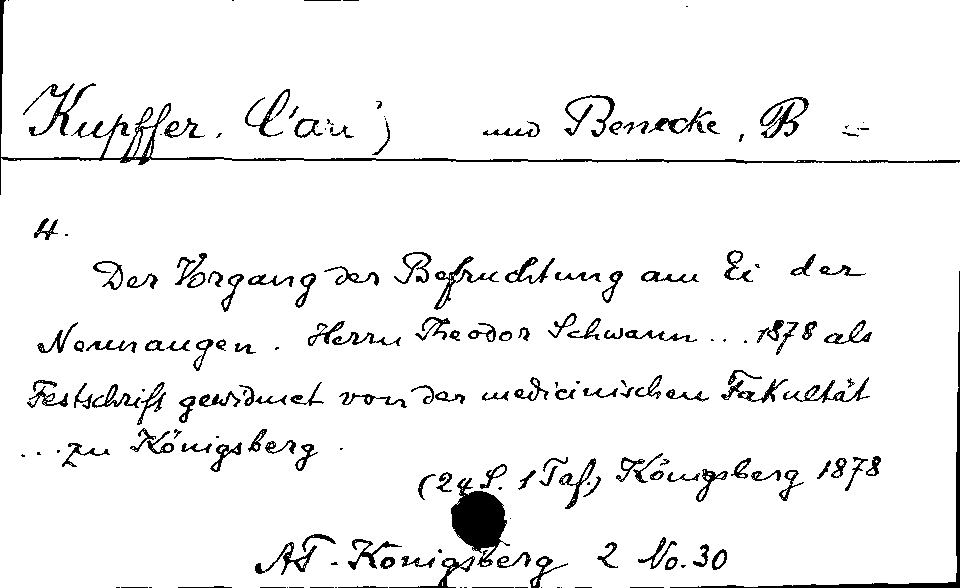 Kupffer, Carl) und Benecke, B
4.
Der Vorgang der Befruchtung am Ei der
Neunaugen. Herrn Theodor Schwann ... 1878 als
Festschrift gewidmet von der medicinischen Fakultät
... zu Königsberg.
(24 S. 1 Taf.) Königsberg 1878
AT-Königsberg 2 No. 30